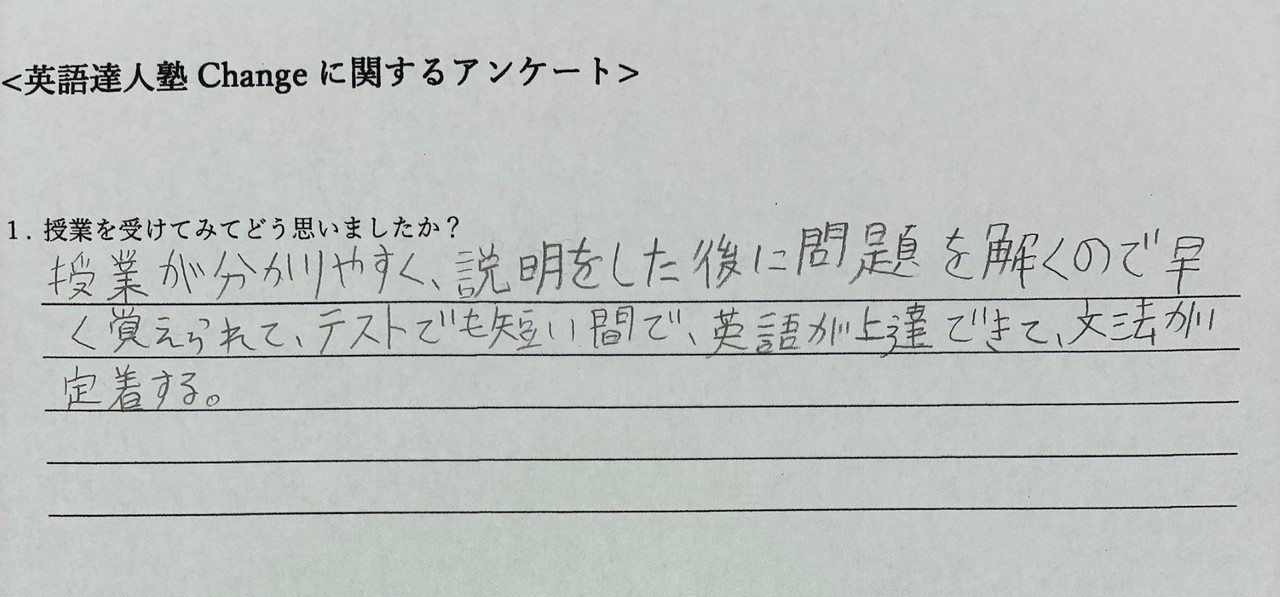 <英語達人塾 Change に関するアンケート>
1. 授業を受けてみてどう思いましたか?
授業が分かりやすく、説明をした後に問題を解くので早
く覚えられて、テストでも短い間で、英語が上達できて、文法が
定着する。